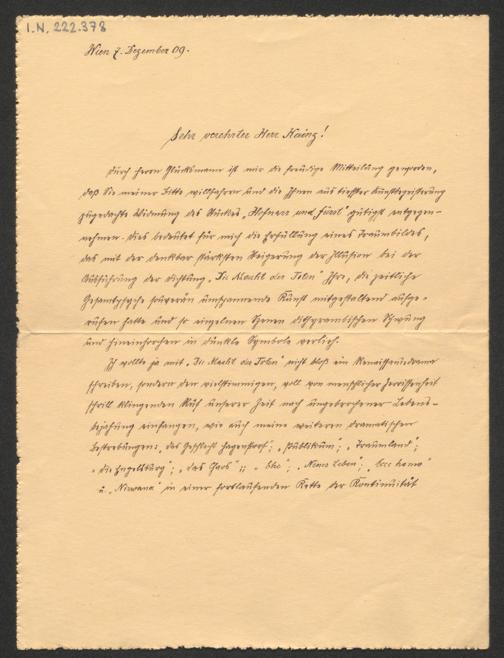 I.N. 222.378
Wien 7. Dezember 09.
Sehr verehrter Herr Kainz!
Durch Herrn Glücksmann ist mir die freudige Mitteilung geworden,
daß Sie meiner Bitte willfahren und die Ihnen aus tiefster Kunstbegeisterung
zugedachte Widmung des Stückes „ und “ gütigst entgegen-
nehmen. Dies bedeutet für mich die Erfüllung eines Traumbildes,
das mit der denkbar stärksten Steigerung der Illusion bei der
Ausführung der Dichtung „Die Macht der Toten“ Ihre, die zeitliche
Gesamtpsyche souverän umspannende Kunst mitgestaltend aufge-
rufen hatte und so einzelnen Szenen dithyrambischen Schwung
und Hineinhorchen in dunkle Symbole verlieh.
Ich wollte ja mit „Die Macht der Toten“ nicht bloß ein Renaissancedrama
schreiben, sondern den vielstimmigen, voll von menschlicher Zerrissenheit
schrill klingenden Ruf unserer Zeit nach ungebrochener Lebens-
bejahung einfangen, wie auch meine weiteren dramatischen
Bestrebungen: „Das Geschlecht “, „Publikum“, „Traumland“;
„die Engelsburg“; „das “; „ “; „Neues Leben“; „Ecce homo“
u. „Nirwana“ in einer fortlaufenden Kette der Kontinuität